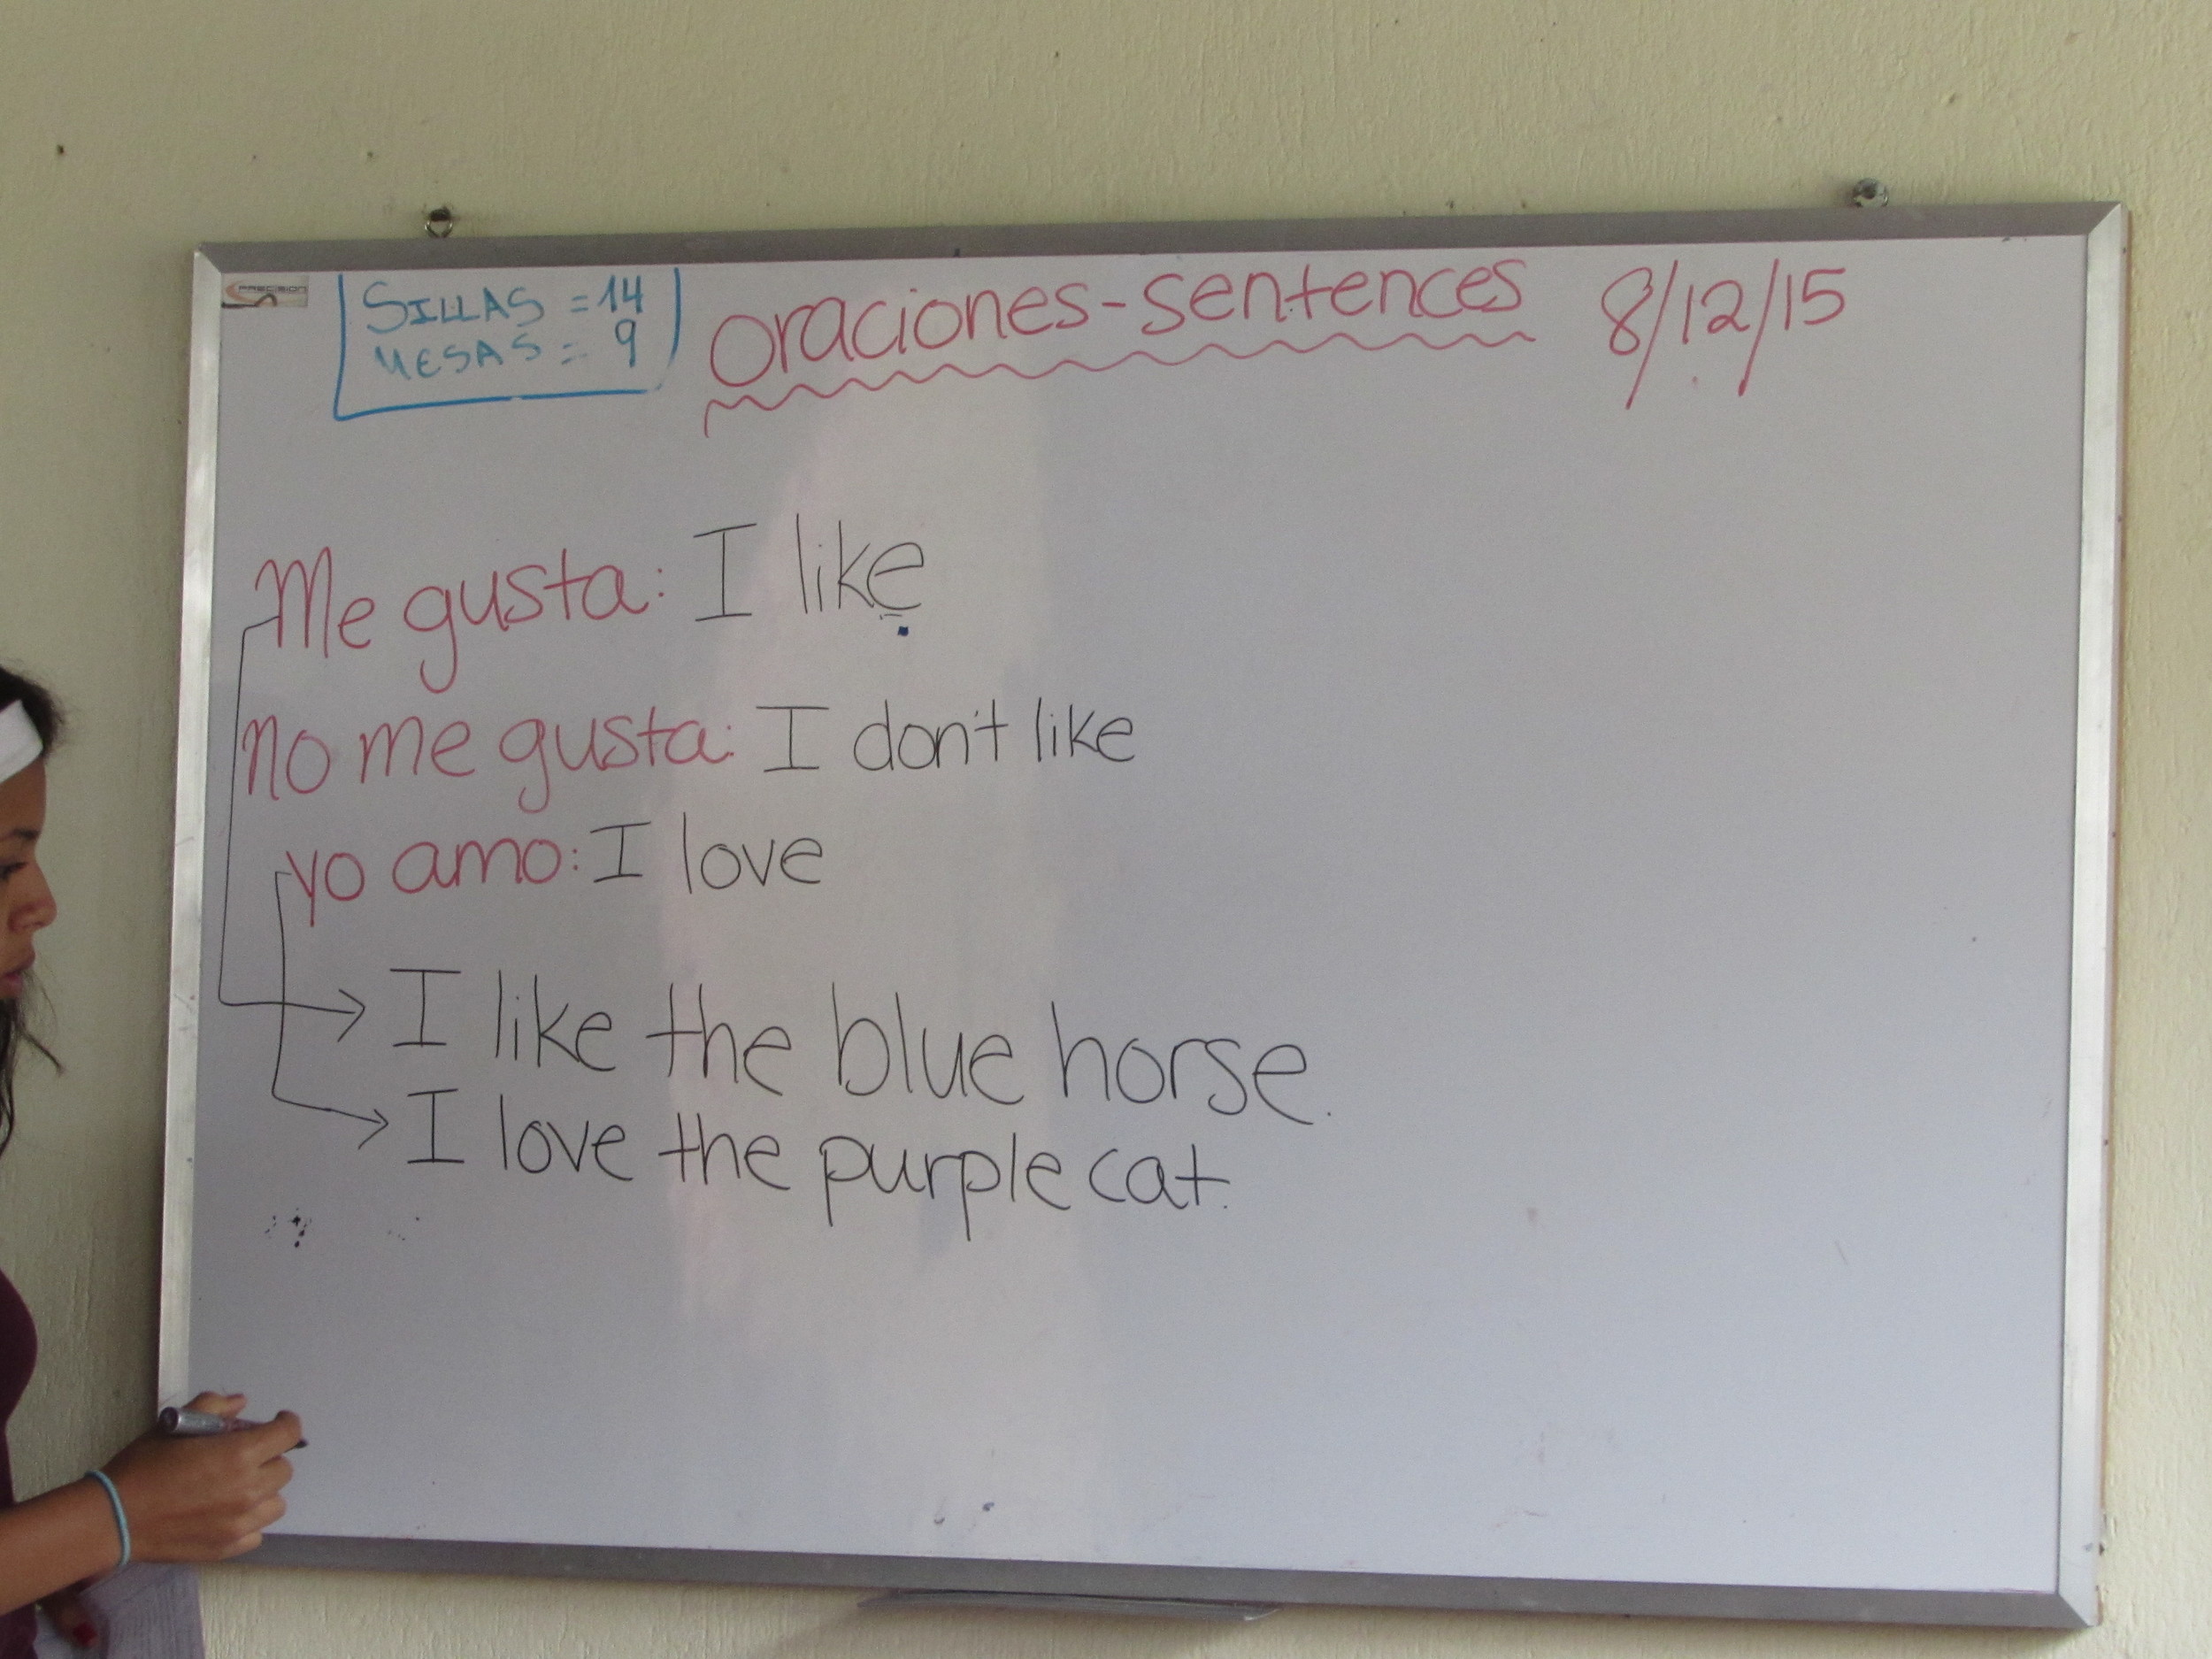 PRECISION
SILLAS = 14
MESAS = 9
oraciones-sentences 8/12/15
Me gusta: I like
no me gusta: I don't like
yo amo: I love
I like the blue horse.
I love the purple cat.